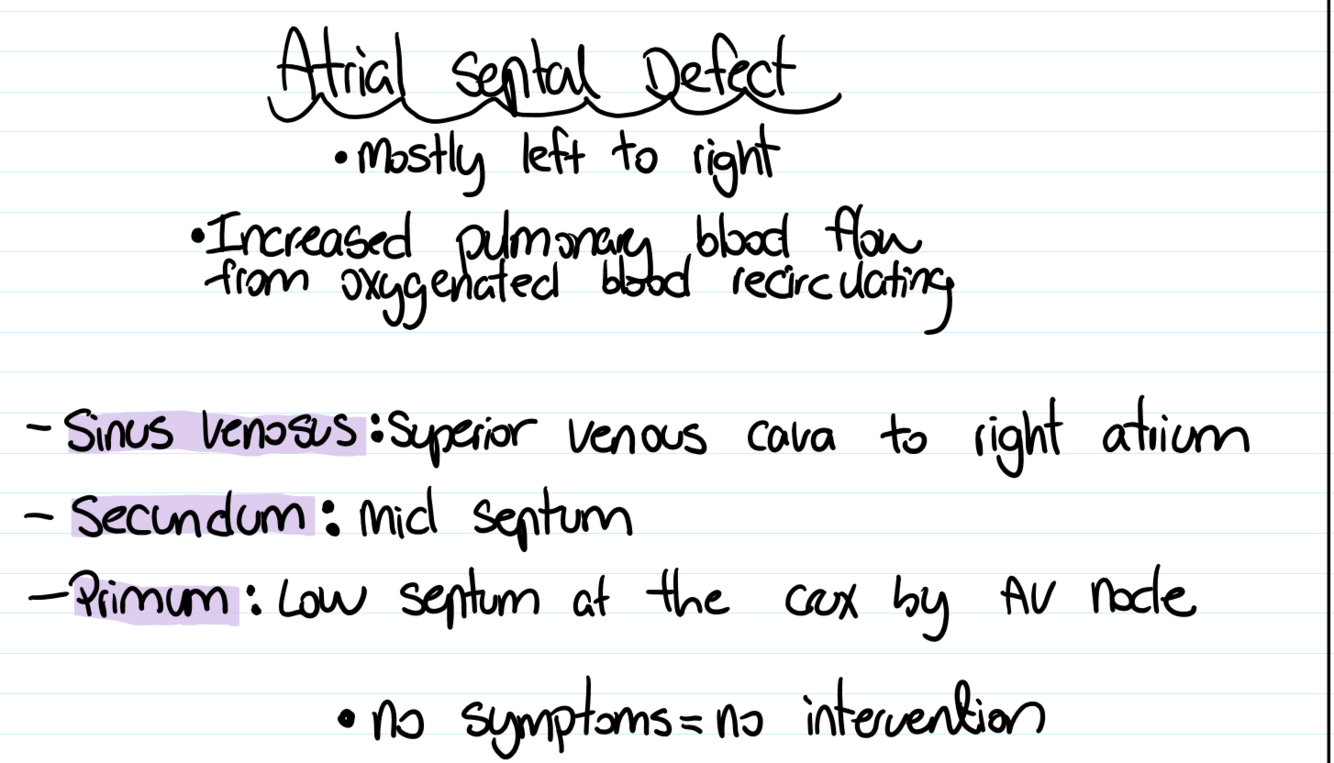 Atrial septal Defect
• Mostly left to right
• Increased pulmonary blood flow
from oxygenated blood recirculating
- Sinus venosus: Superior venous cava to right atrium
- Secundum: mid septum
- Primum: Low septum at the cux by AV node
• no symptoms = no intervention